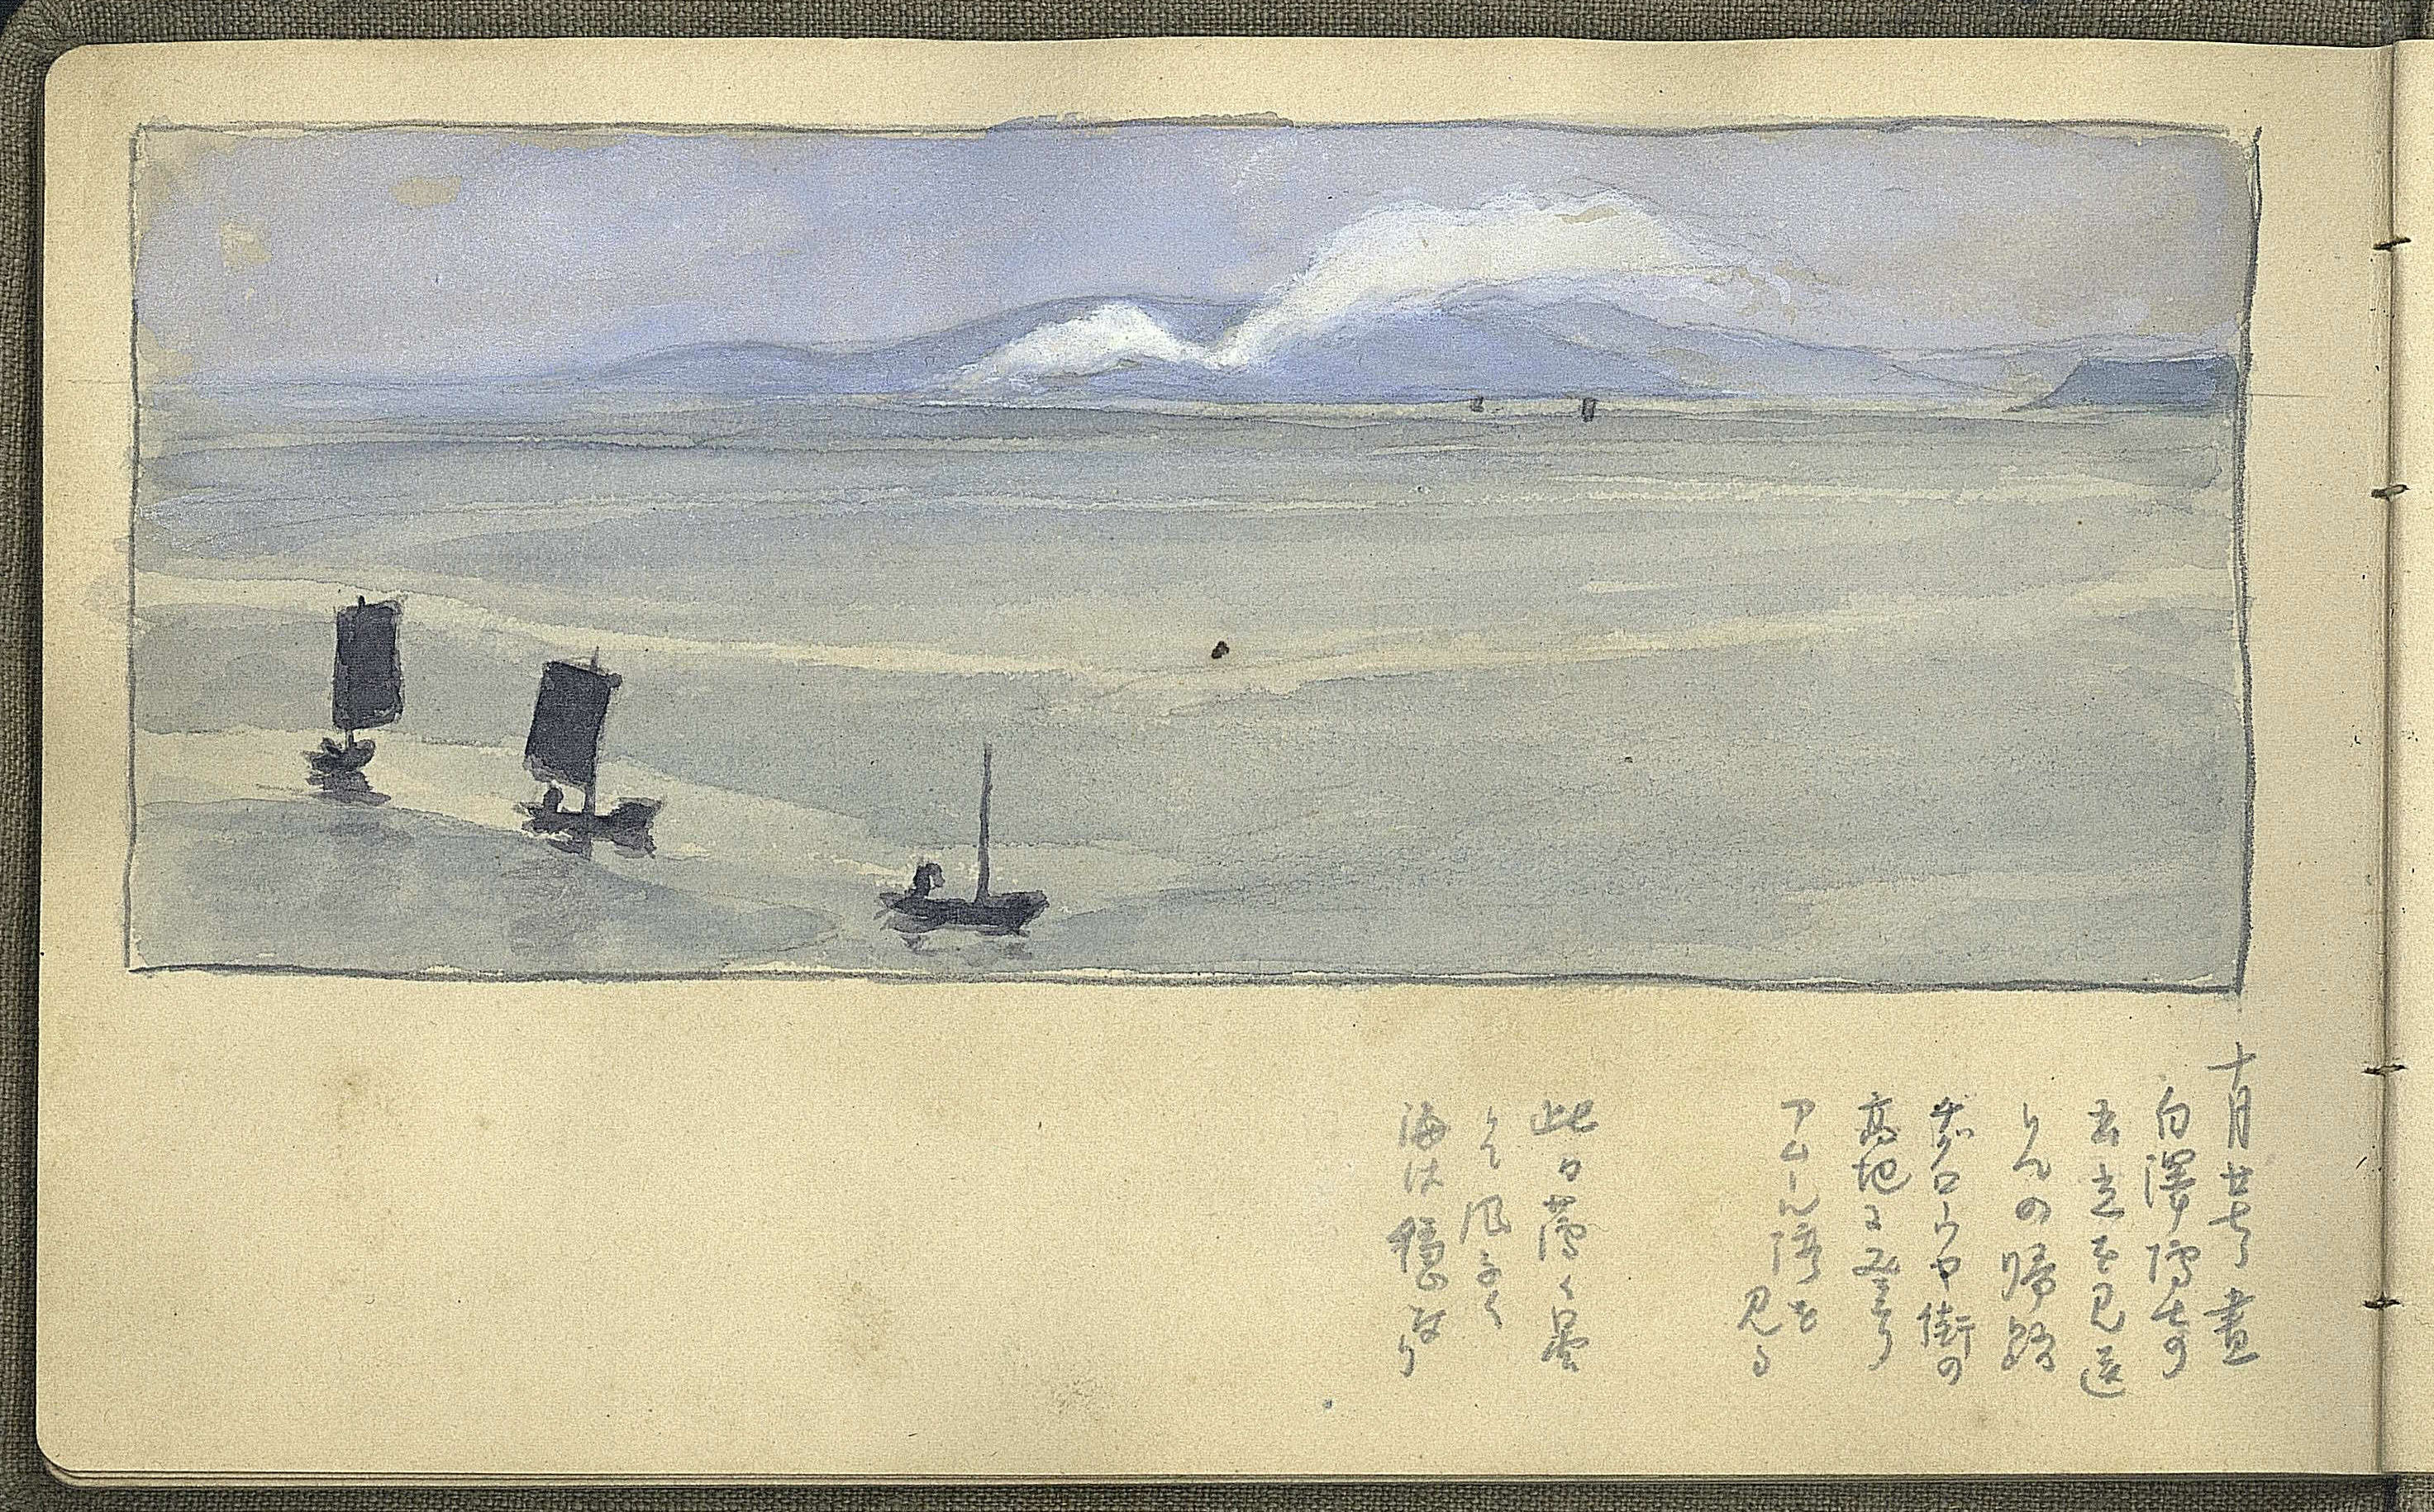 十月廿七日 晝
白澤博士の
出立を見送
りの帰路
街の
高地に登り
アムール湾を
見る
此日薄く曇
りて風なく
海は穏なり